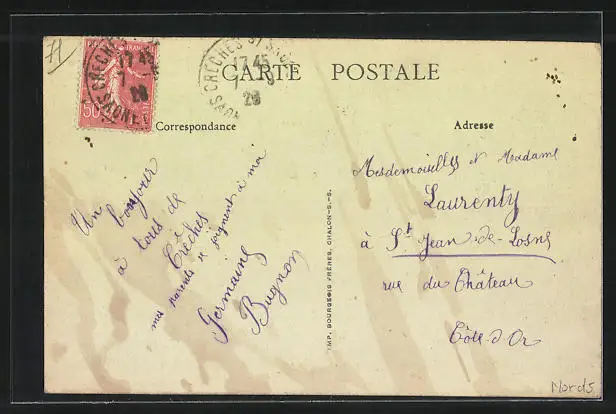 71
CRÈCHES-S-SAONE
17 45
7
28
50
CRÈCHES-S-SAONE
17 45
7
28
CARTE POSTALE
Correspondance
Adresse
Un bonjour
à tous de
Crèches
mes parents se joignent à moi
Germaine
Bugnon
IMP. BOURGEOIS FRÈRES, CHALON-S.-S.
Mesdemoiselles et Madame
Laurenty
à St Jean-de-Losne
rue du Château
Côte d'Or
Nords